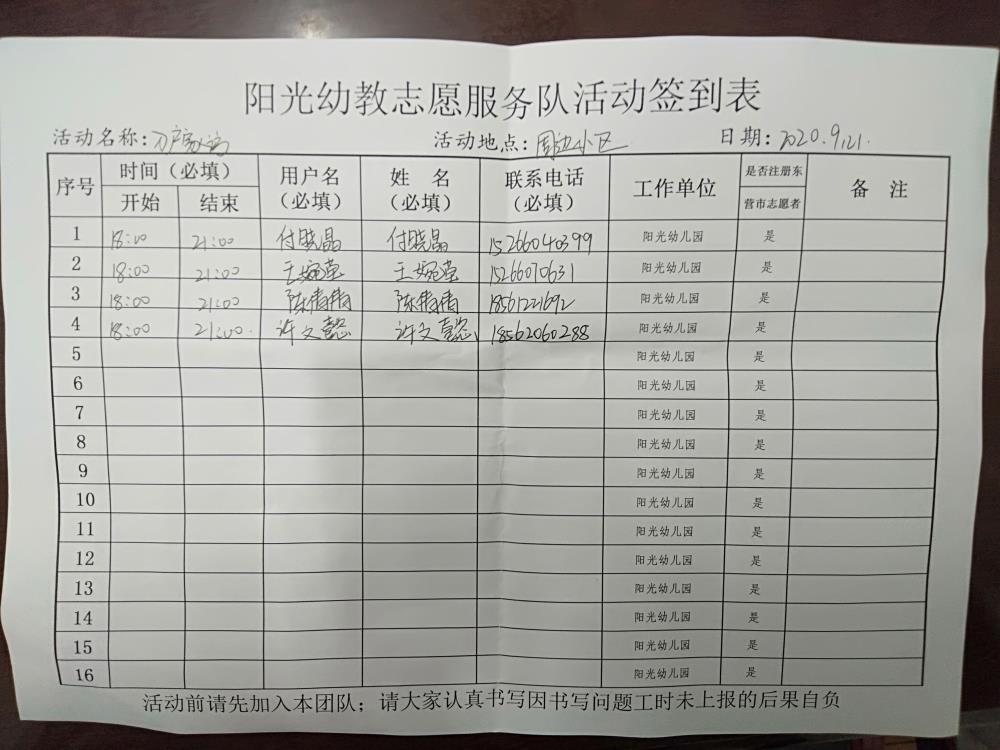 阳光幼教志愿服务队活动签到表
活动名称: 活动地点: 周边小区 日期: 2020.9.21.
序号 时间（必填） 用户名（必填） 姓 名（必填） 联系电话（必填） 工作单位 是否注册东营市志愿者 备 注
开始 结束
1 18:00 21:00 付晓晶 付晓晶 15266040399 阳光幼儿园 是
2 18:00 21:00 王婉莹 王婉莹 15266070631 阳光幼儿园 是
3 18:00 21:00 陈倩倩 陈倩倩 18561221692 阳光幼儿园 是
4 18:00 21:00. 许文懿 许文懿 18562060288 阳光幼儿园 是
5 阳光幼儿园 是
6 阳光幼儿园 是
7 阳光幼儿园 是
8 阳光幼儿园 是
9 阳光幼儿园 是
10 阳光幼儿园 是
11 阳光幼儿园 是
12 阳光幼儿园 是
13 阳光幼儿园 是
14 阳光幼儿园 是
15 阳光幼儿园 是
16 阳光幼儿园 是
活动前请先加入本团队；请大家认真书写因书写问题工时未上报的后果自负